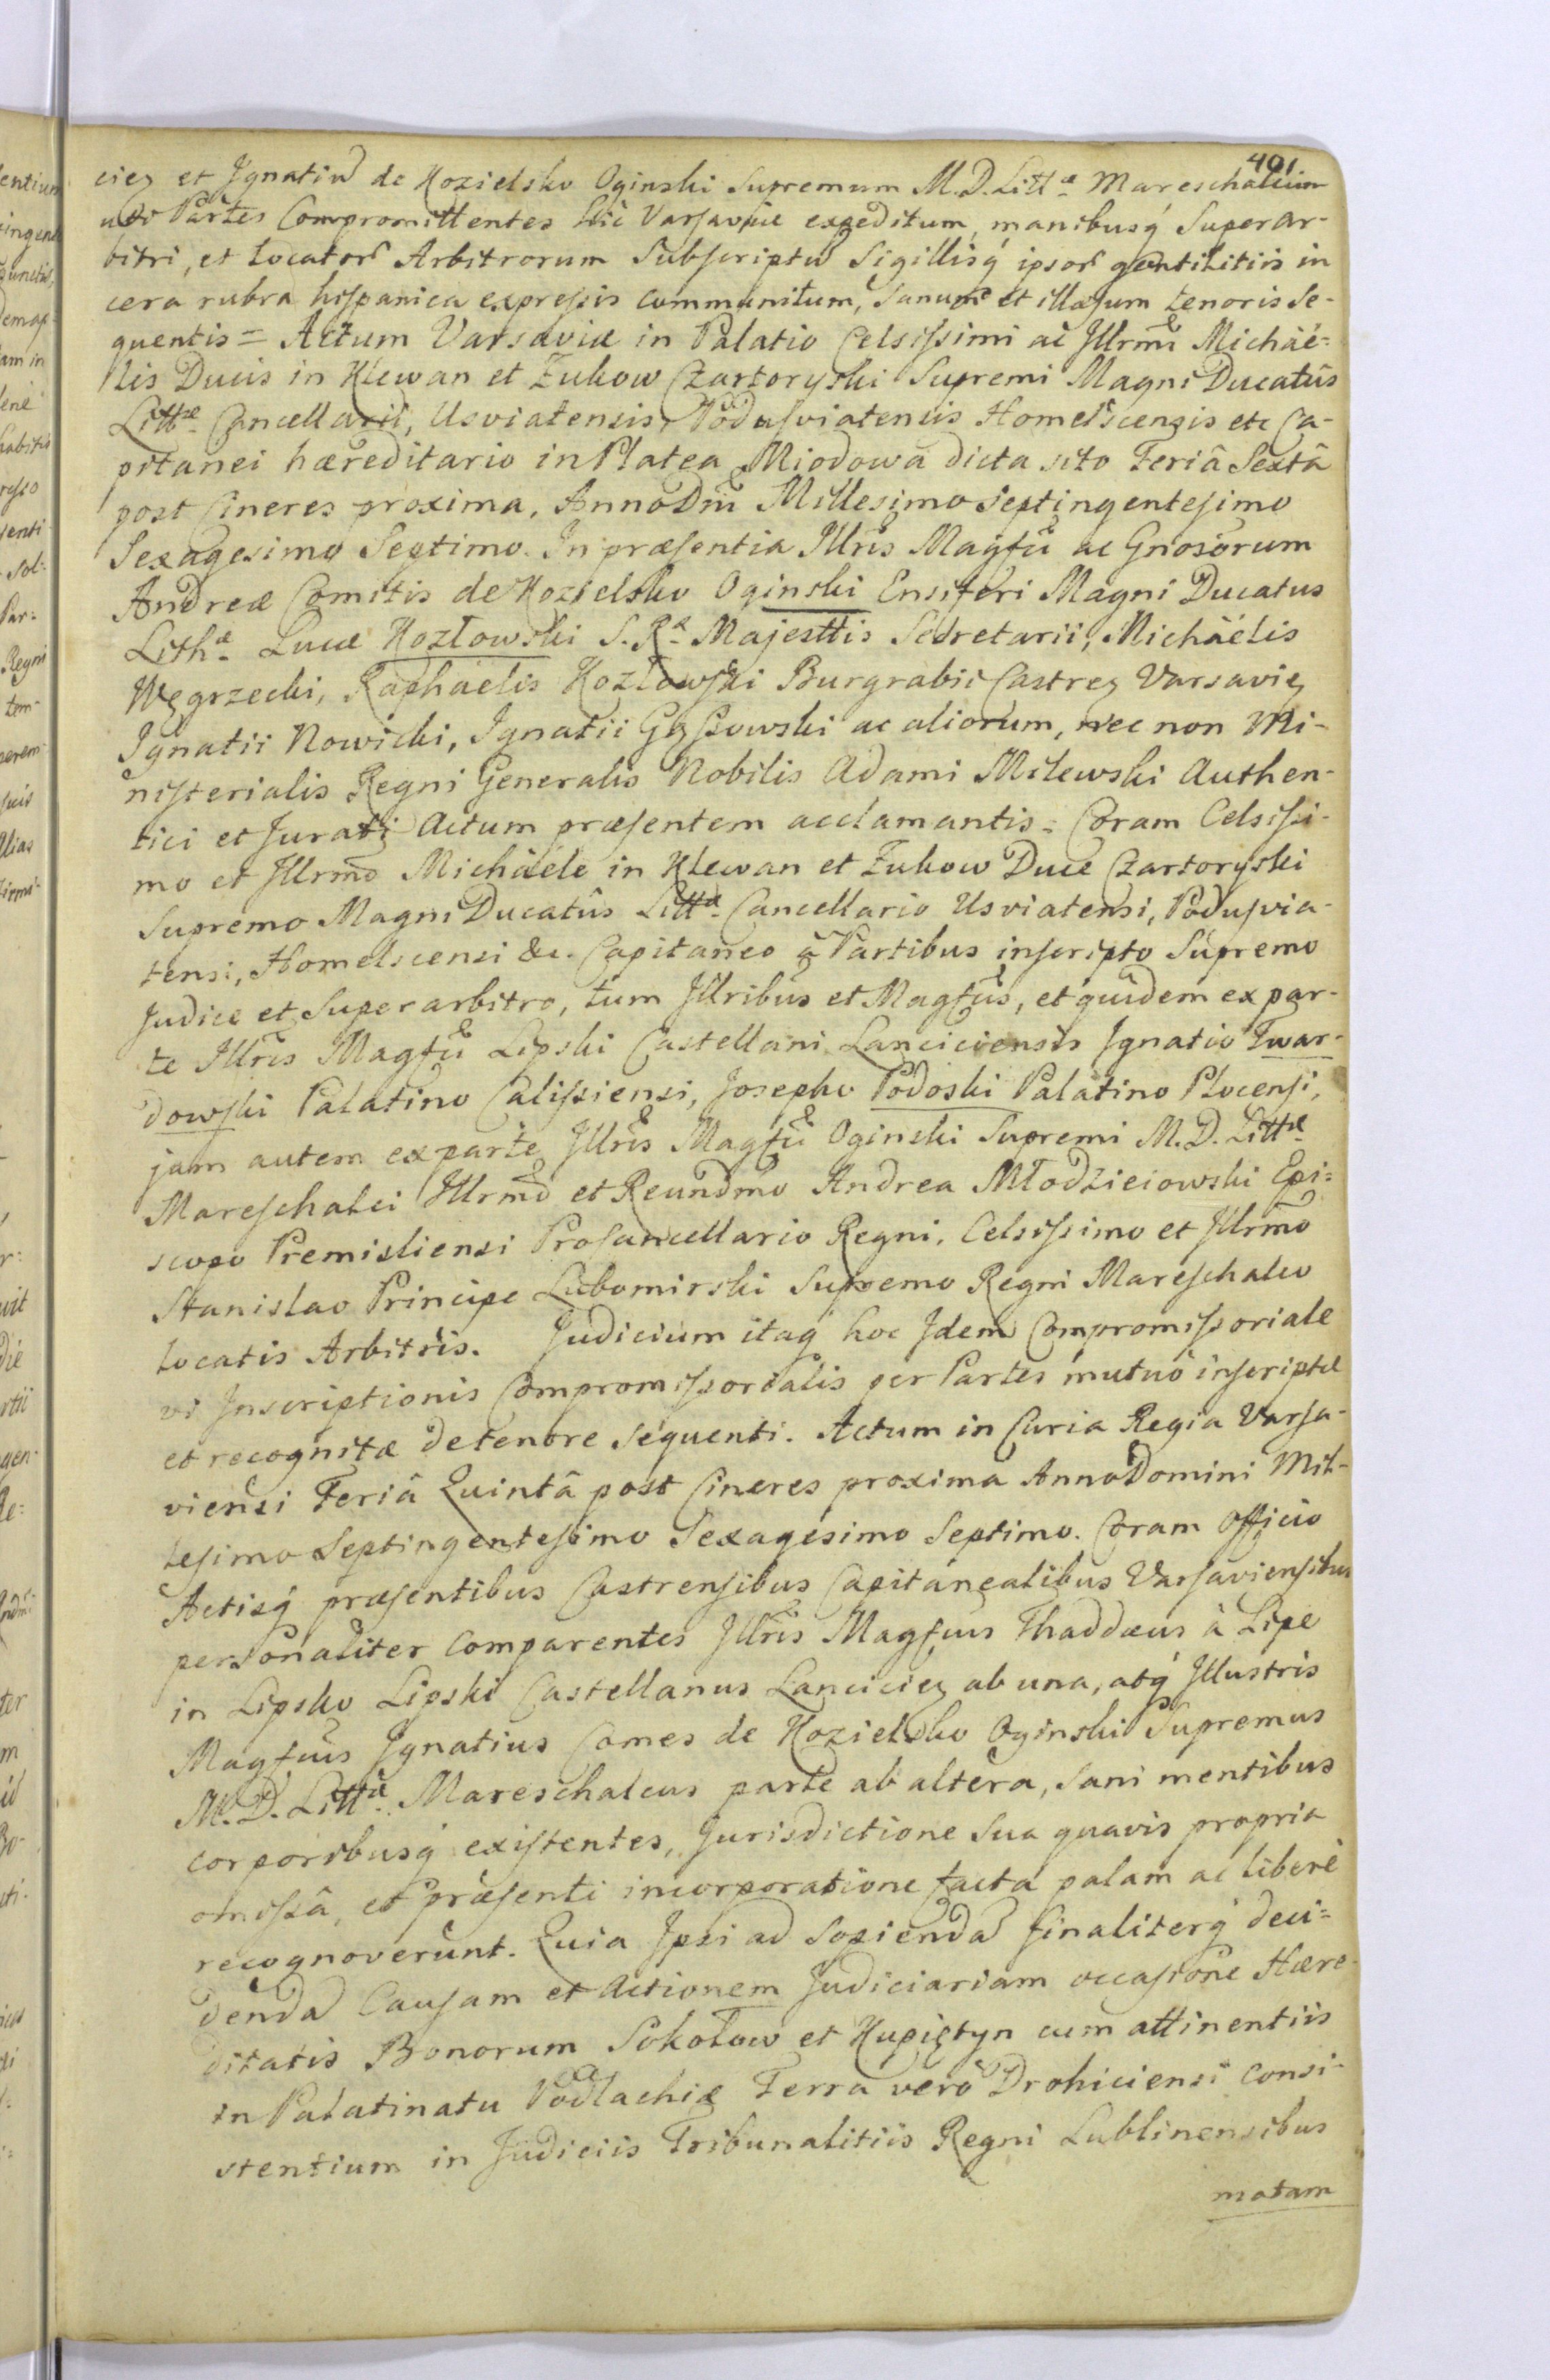 401
ciez et Ignatiu de Kozielsko Oginski Supremum M.D.Littæ Mareschalcum
uti Partes Compromittentes hic Varsaviæ expeditum, manibusq́ Superar-
bitri, et locator Arbitrorum Subscriptu Sigillisq́ ipsor gentilitiis in
cera rubra hispanica expressis communitum, Sanum et illæsum tenoris Se-
quentis = Actum Varsaviæ in Palatio Celsissimi ac Illrmi Michäé-
lis Ducis in Klewan et Zukow Czartoryski Supremi Magni Ducatûs
Littæ Cancellarii, Usviatensis, Podusviatensis Homelscensis etc Ca-
pitanei hæreditario in Platea Miodowa dicta sito Feriâ Sextâ
post Cineres proxima, Anno Dni Millesimo Septingentesimo
Sexagesimo Septimo. In præsentia Illris Magfci ac Gnosorum
Andreæ Comitis de Kozielsko Oginski Ensiferi Magni Ducatus
Lithæ Lucæ Kozłowski S. Ræ Majesttis Secretarii, Michäelis
Węgrzecki, Raphäelis Kozłowski Burgrabii Castreż Varsavież
Ignatii Nowicki, Ignatii Gąssowski ac aliorum, nec non Mi-
nisterialis Regni Generalis Nobilis Adami Milewski Authen-
tici et Jurati Actum præsentem acclamantis = Coram Celsissi-
mo et Illrmo Michäéle in Klewan et Zukow Duce Czartoryski
Supremo Magni Ducatûs Littæ Cancellario Usviatensi, Podusvia-
tensi, Homelscensi &c. Capitaneo à Partibus inscripto Supremo
Judice et Superarbitro, tum Illribus et Magfcis, et quidem ex par-
te Illris Magfci Lipski Castellani Lanciciensis Ignatio Twar-
dowski Palatino Calissiensi, Josepho Podoski Palatino Plocensi,
jam autem ex parte Illris Magfci Oginski Supremi M.D. Littæ
Mareschalci Illrmo et Reundmo Andrea Młodzieiowski Epi-
scopo Premisliensi Procancellario Regni, Celsissimo et Illrmo
Stanislao Principe Lubomirski Supremo Regni Mareschalco
locatis Arbitris. Judicium itaq́ hoc Idem Compromissoriale
vi Inscriptionis Compromissorialis per Partes mutuò inscriptæ
et recognitæ de tenore sequenti. Actum in Curia Regia Varsa-
viensi Feriâ Quintâ post Cineres proxima Anno Domini Mil-
lesimo Septingentesimo Sexagesimo Septimo. Coram Officio
Actisq́ præsentibus Castrensibus Capitanealibus Varsaviensibus
personaliter comparentes Illris Magfcus Thaddæus à Lipe
in Lipsko Lipski Castellanus Lancicież ab una, atq́ Illustris
Magfcus Ignatius Comes de Kozielsko Oginski Supremus
M.D. Littæ Mareschalcus parte ab altera, sani mentibus
corporibusq́ existentes, Jurisdictione sua quavis propria
omissâ, et præsenti incorporatione facta palam ac liberè
recognoverunt. Quia Ipsi ad Sopienda finaliterq́ deci-
denda Causam et Actionem Judiciariam occasione Hære-
ditatis Bonorum Sokołow et Kupiętyn cum attinentiis
in Palatinatu Podlachiæ Terra verò Drohiciensi consi-
stentium in Judiciis Tribunalitiis Regni Lublinensibus
motam